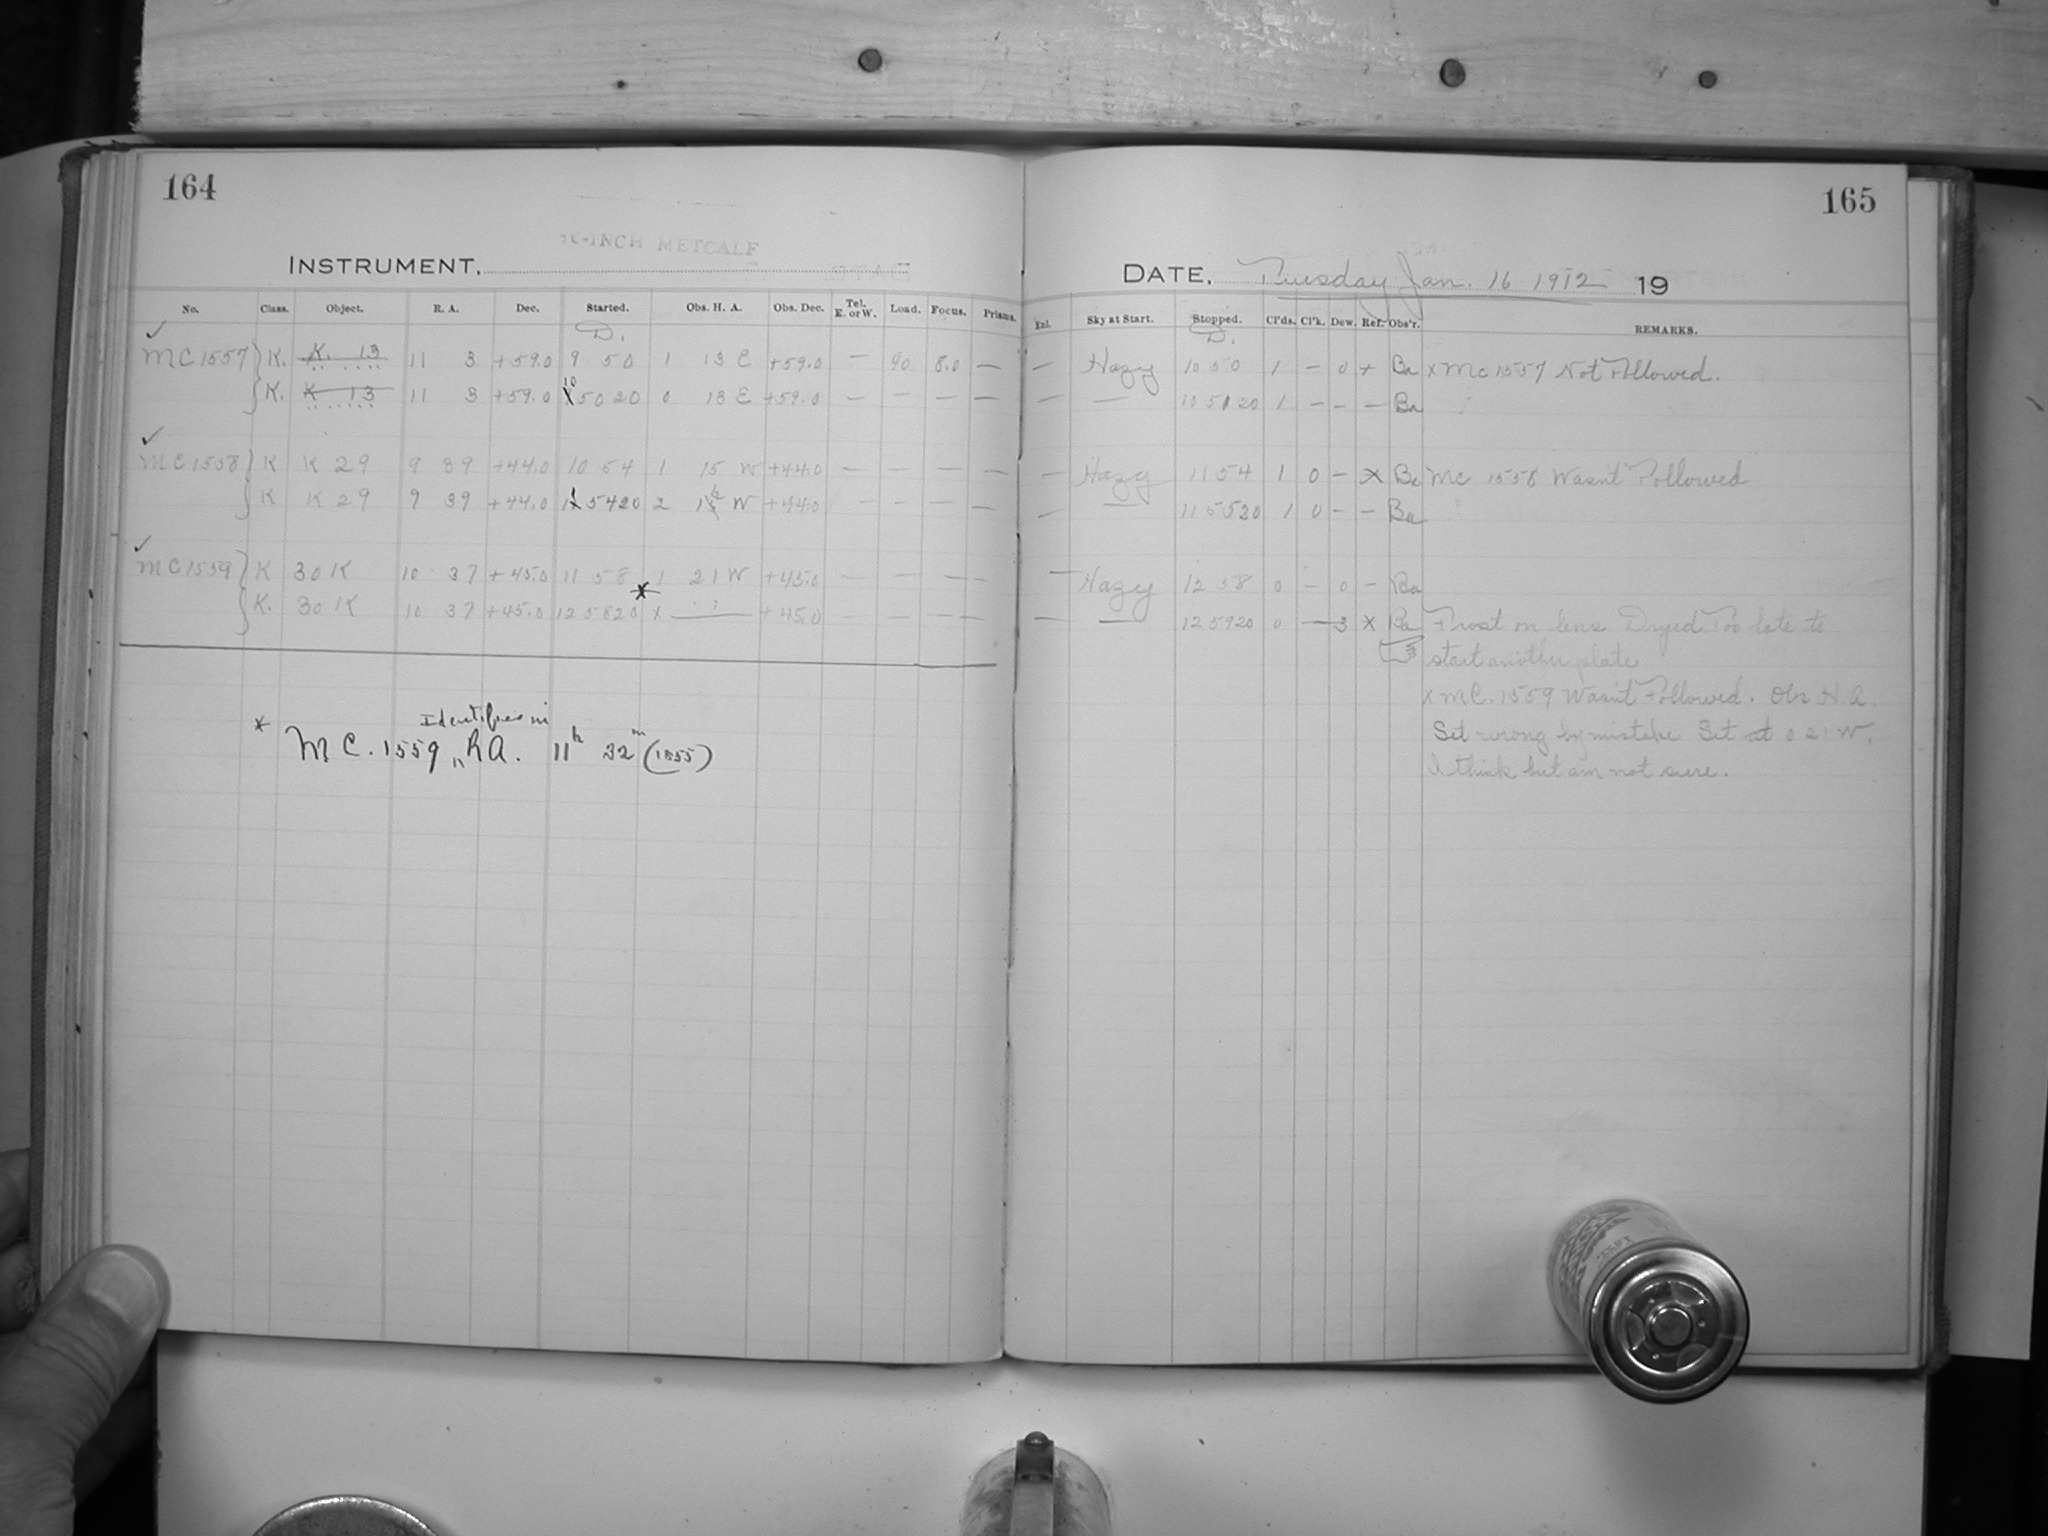 164
165
-INCH METCALF
INSTRUMENT,
DATE, Tuesday Jan. 16 1912 19
No. Class. Object. R. A. Dec. Started. Obs. H. A. Obs. Dec. Tel. E. or W. Load. Focus. Prisms. Enl. Sky at Start. Stopped. Cl'ds. Cl'k. Dew. Ref. Obs'r. REMARKS.
D. D.
MC 1557 K. K. 13 11 3 +59.0 9 50 1 13 E +59.0 — 90 8.0 — — Hazy 10 50 1 — 0 x Ba x MC 1557 Not Followed.
K. K 13 11 3 +59.0 10 50 20 0 13 E +59.0 — — — — — — 10 51 20 1 — — — Ba
MC 1558 K K 29 9 39 +44.0 10 54 1 15 W +44.0 — — — — — Hazy 11 54 1 0 — x Ba MC 1558 Wasn't Followed
K K 29 9 39 +44.0 11 54 20 2 16 W +44.0 — — — — — — 11 55 20 1 0 — — Ba
MC 1559 K 30 K 10 37 +45.0 11 58 1 21 W +45.0 — — — — Hazy 12 58 0 — 0 — Ba
K. 30 K 10 37 +45.0 12 58 20 * x — +45.0 — — — — — — 12 59 20 0 — 3 x Ba Frost on lens Dryed Too late to
start another plate
x MC. 1559 Wasn't Followed. Obs H.A.
Set wrong by mistake Set at 0 21 W.
I think but am not sure.
Identifies in
* MC. 1559 " RA. 11h 32m (1855)